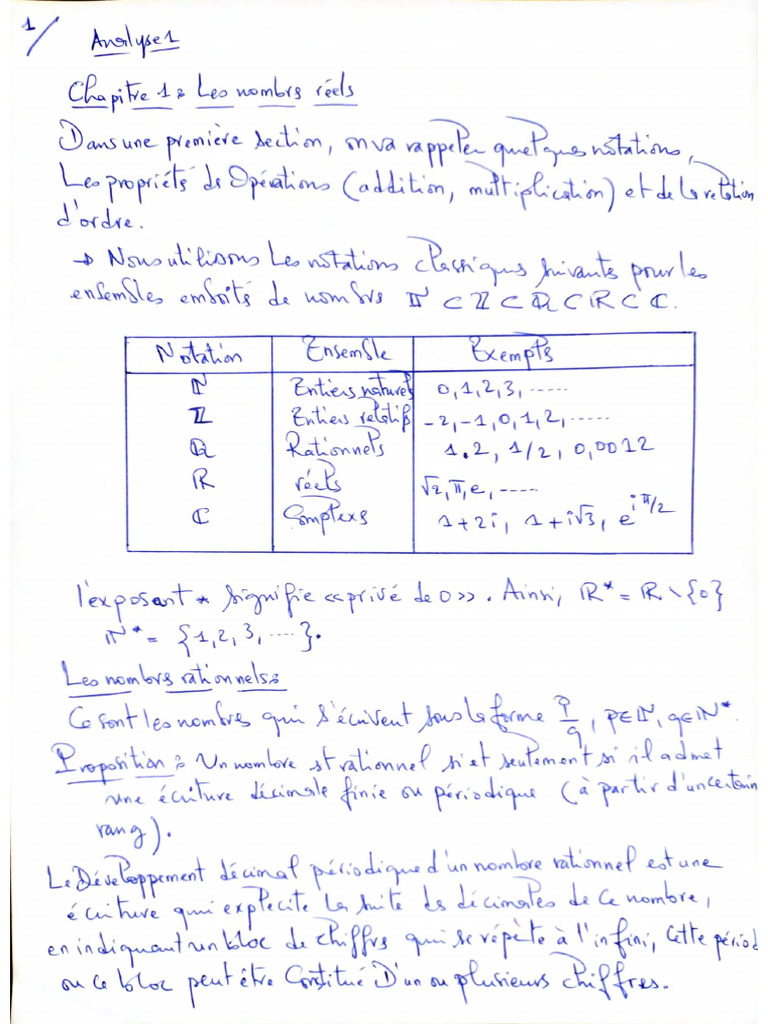 1/
Analyse 1
Chapitre 1 : Les nombres réels
Dans une première section, on va rappeler quelques notations,
Les propriétés des Opérations (addition, multiplication) et de la relation
d'ordre.
→ Nous utilisons les notations classiques suivantes pour les
ensembles emboîtés de nombres ℕ ⊂ ℤ ⊂ ℚ ⊂ ℝ ⊂ ℂ.
Notation Ensemble Exemples
ℕ Entiers naturels 0, 1, 2, 3, ......
ℤ Entiers relatifs -2, -1, 0, 1, 2, ......
ℚ Rationnels 1.2, 1/2, 0,0012
ℝ réels √2, π, e, .....
ℂ Complexes 1+2i, 1+i√3, e^{iπ/2}
l'exposant * signifie «privé de 0». Ainsi, ℝ* = ℝ \ {0}
ℕ* = {1, 2, 3, ....}.
Les nombres rationnels :
Ce sont les nombres qui s'écrivent sous la forme p/q, p∈ℕ, q∈ℕ*.
Proposition : Un nombre est rationnel si et seulement si il admet
une écriture décimale finie ou périodique (à partir d'un certain
rang).
Le Développement décimal périodique d'un nombre rationnel est une
écriture qui explecite la suite des décimales de ce nombre,
en indiquant un bloc de chiffres qui se répète à l'infini, Cette périod
ou ce bloc peut être Constitué D'un ou plusieurs chiffres.